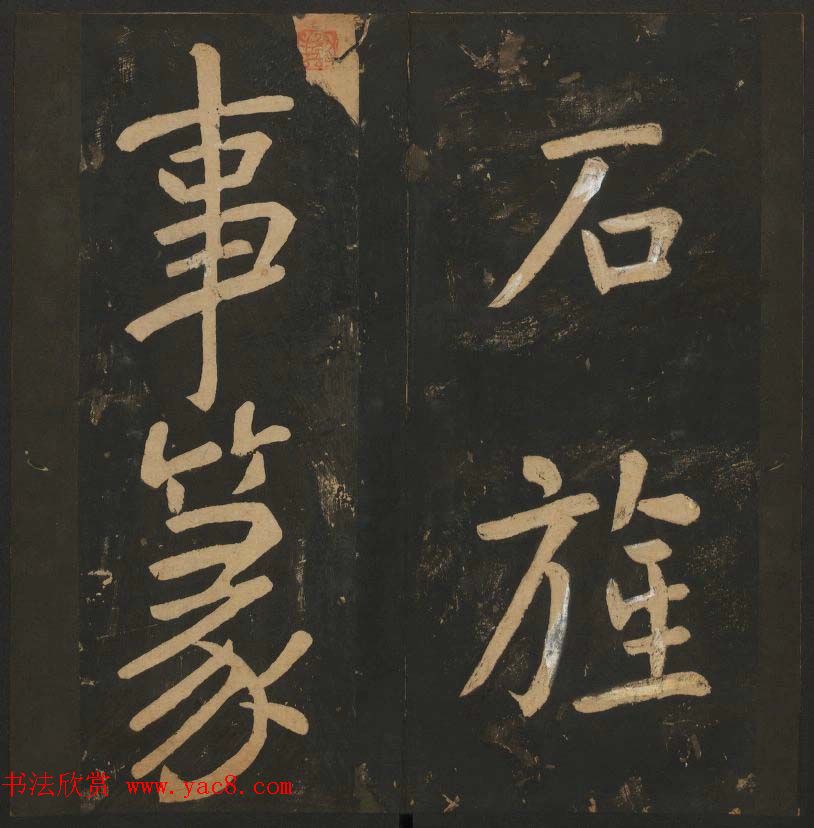 石旌
事篆
书法欣赏 www.yac8.com